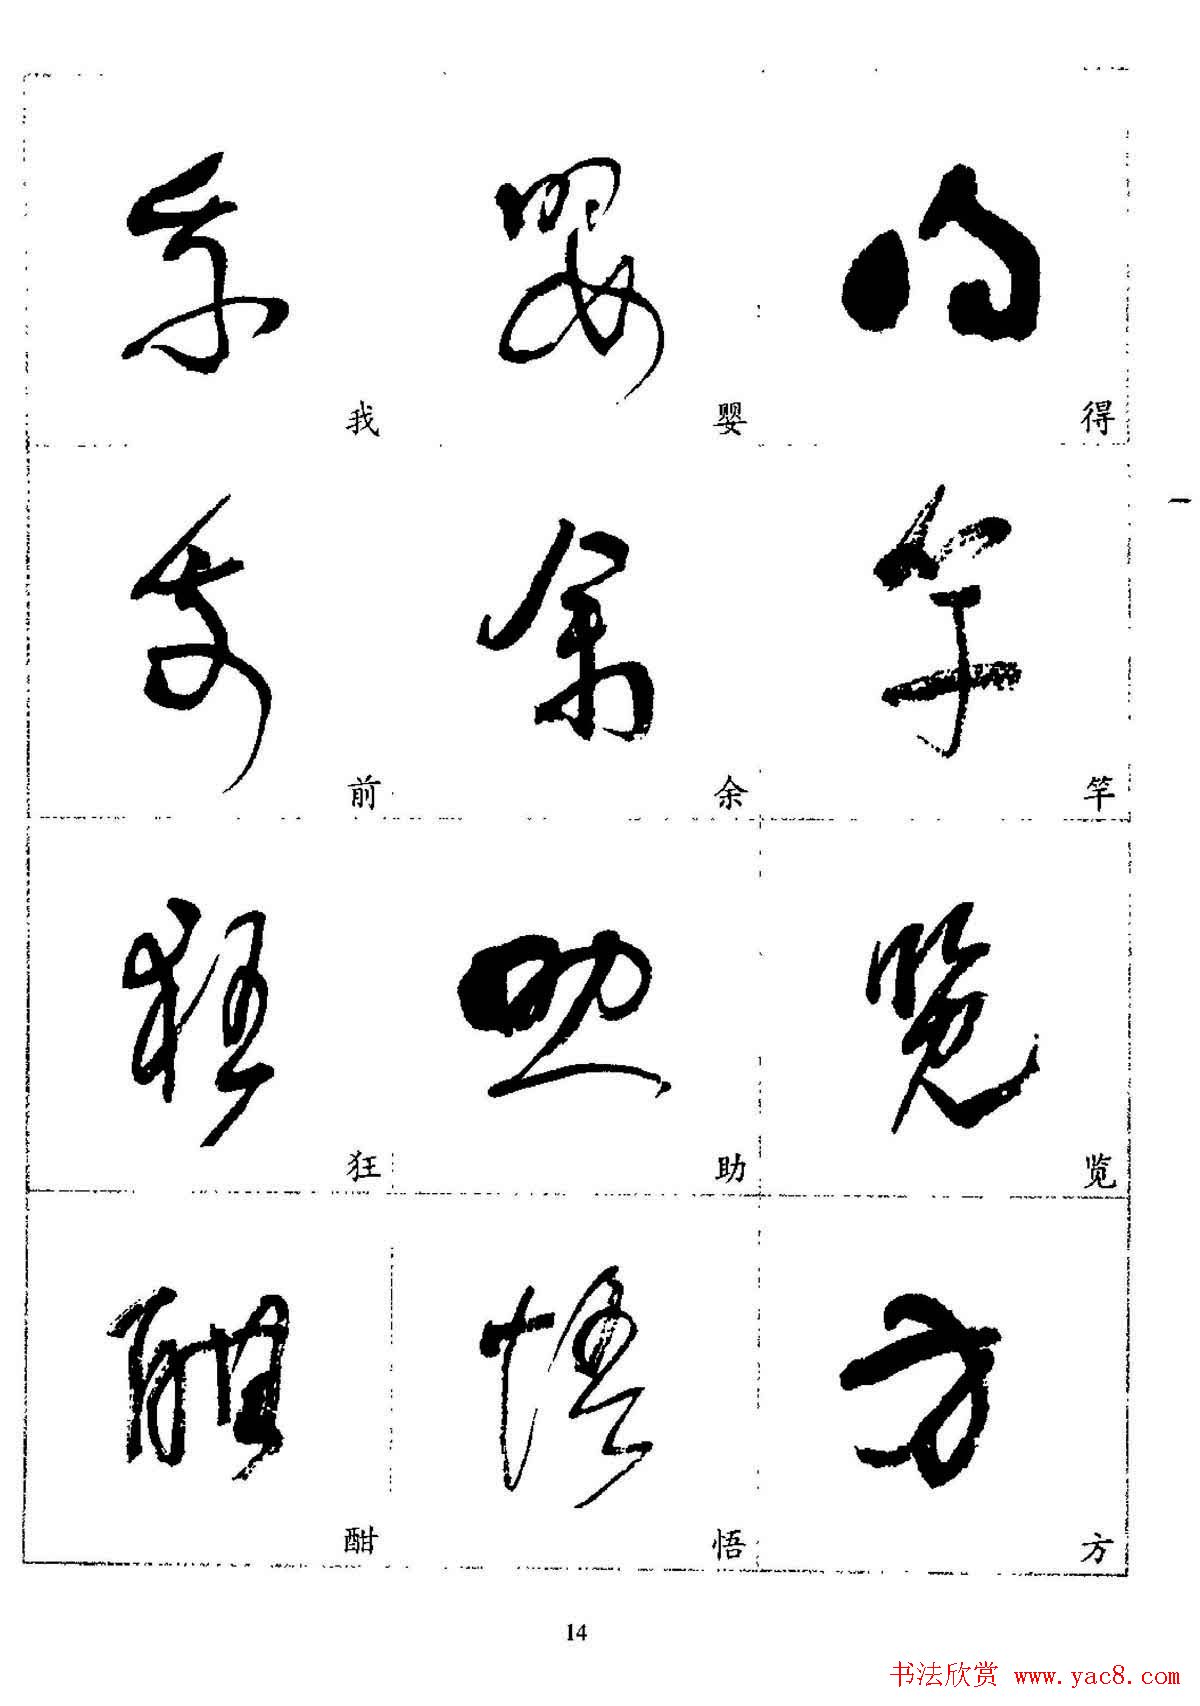 我 婴 得
前 余 竿
狂 助 览
酣 悟 方
14
书法欣赏 www.yac8.com